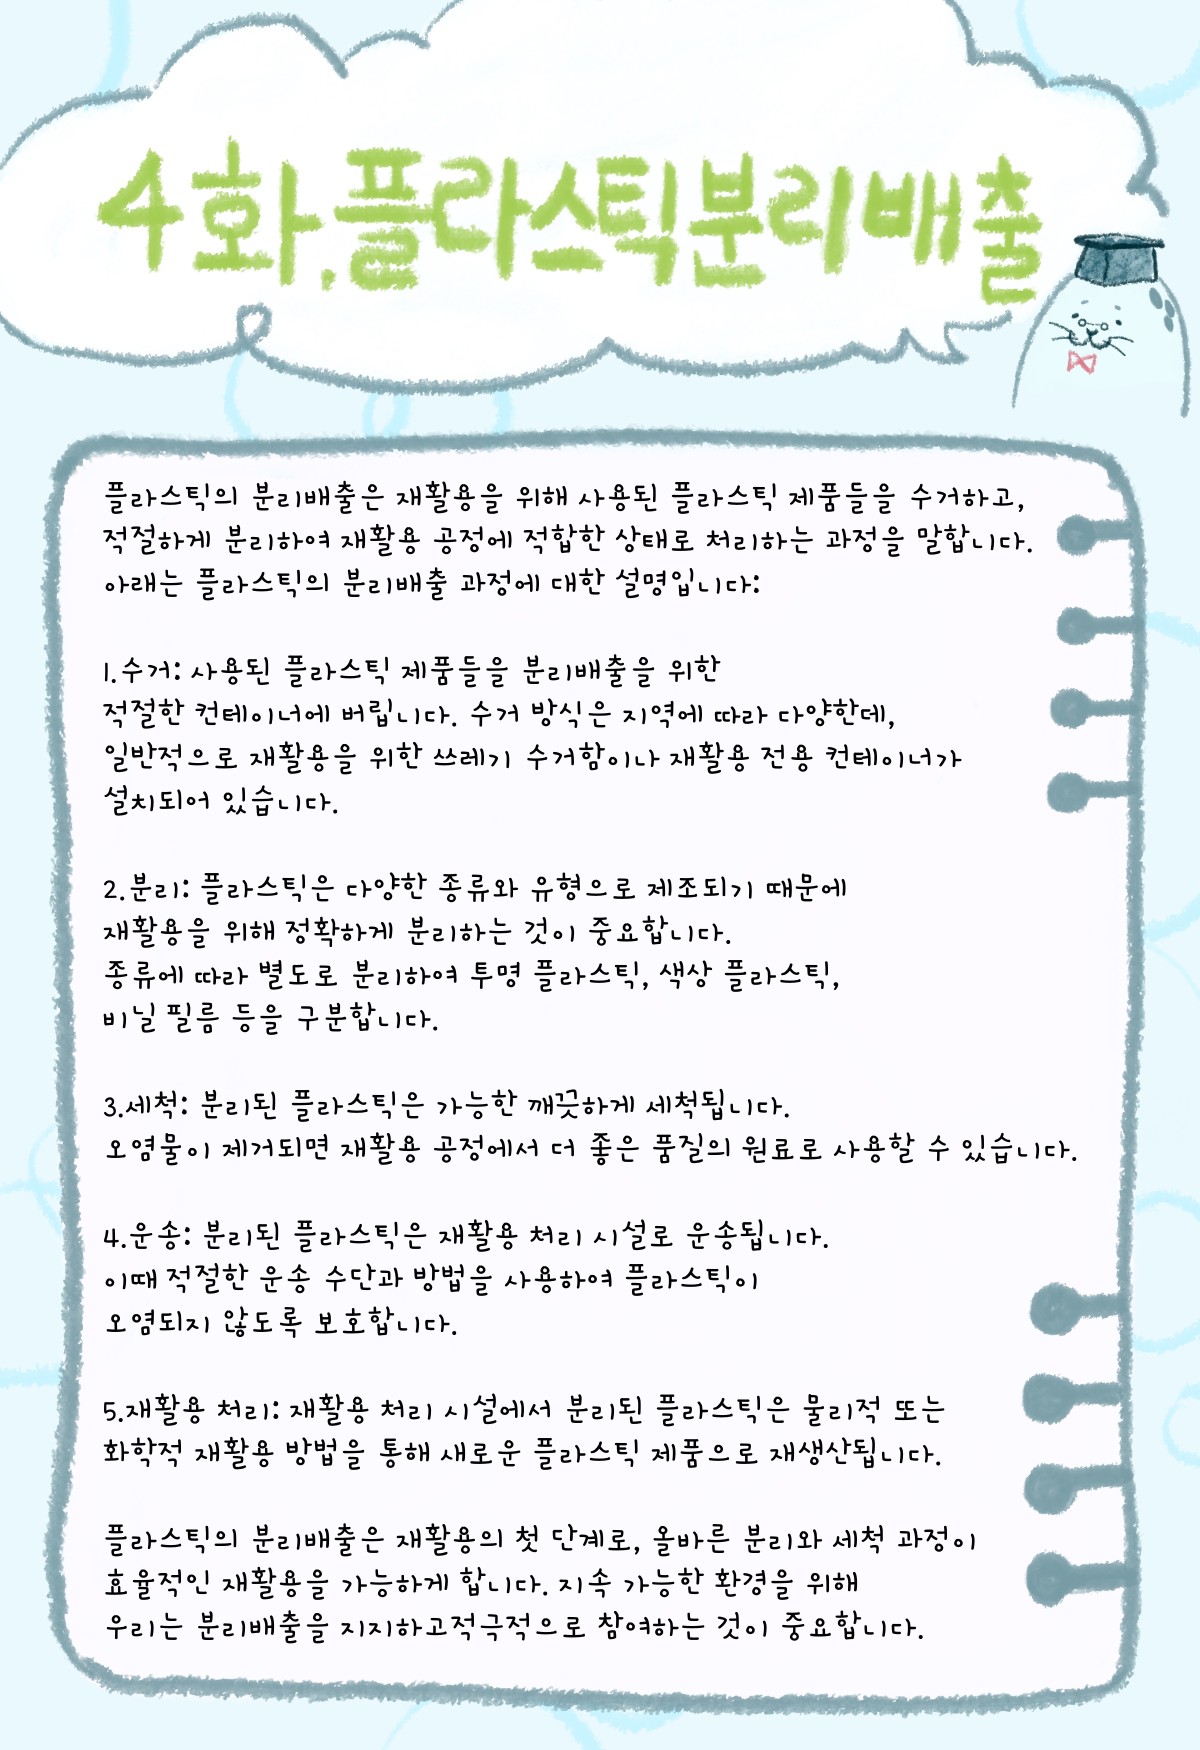 4화.플라스틱분리배출
플라스틱의 분리배출은 재활용을 위해 사용된 플라스틱 제품들을 수거하고,
적절하게 분리하여 재활용 공정에 적합한 상태로 처리하는 과정을 말합니다.
아래는 플라스틱의 분리배출 과정에 대한 설명입니다:
1.수거: 사용된 플라스틱 제품들을 분리배출을 위한
적절한 컨테이너에 버립니다. 수거 방식은 지역에 따라 다양한데,
일반적으로 재활용을 위한 쓰레기 수거함이나 재활용 전용 컨테이너가
설치되어 있습니다.
2.분리: 플라스틱은 다양한 종류와 유형으로 제조되기 때문에
재활용을 위해 정확하게 분리하는 것이 중요합니다.
종류에 따라 별도로 분리하여 투명 플라스틱, 색상 플라스틱,
비닐 필름 등을 구분합니다.
3.세척: 분리된 플라스틱은 가능한 깨끗하게 세척됩니다.
오염물이 제거되면 재활용 공정에서 더 좋은 품질의 원료로 사용할 수 있습니다.
4.운송: 분리된 플라스틱은 재활용 처리 시설로 운송됩니다.
이때 적절한 운송 수단과 방법을 사용하여 플라스틱이
오염되지 않도록 보호합니다.
5.재활용 처리: 재활용 처리 시설에서 분리된 플라스틱은 물리적 또는
화학적 재활용 방법을 통해 새로운 플라스틱 제품으로 재생산됩니다.
플라스틱의 분리배출은 재활용의 첫 단계로, 올바른 분리와 세척 과정이
효율적인 재활용을 가능하게 합니다. 지속 가능한 환경을 위해
우리는 분리배출을 지지하고적극적으로 참여하는 것이 중요합니다.